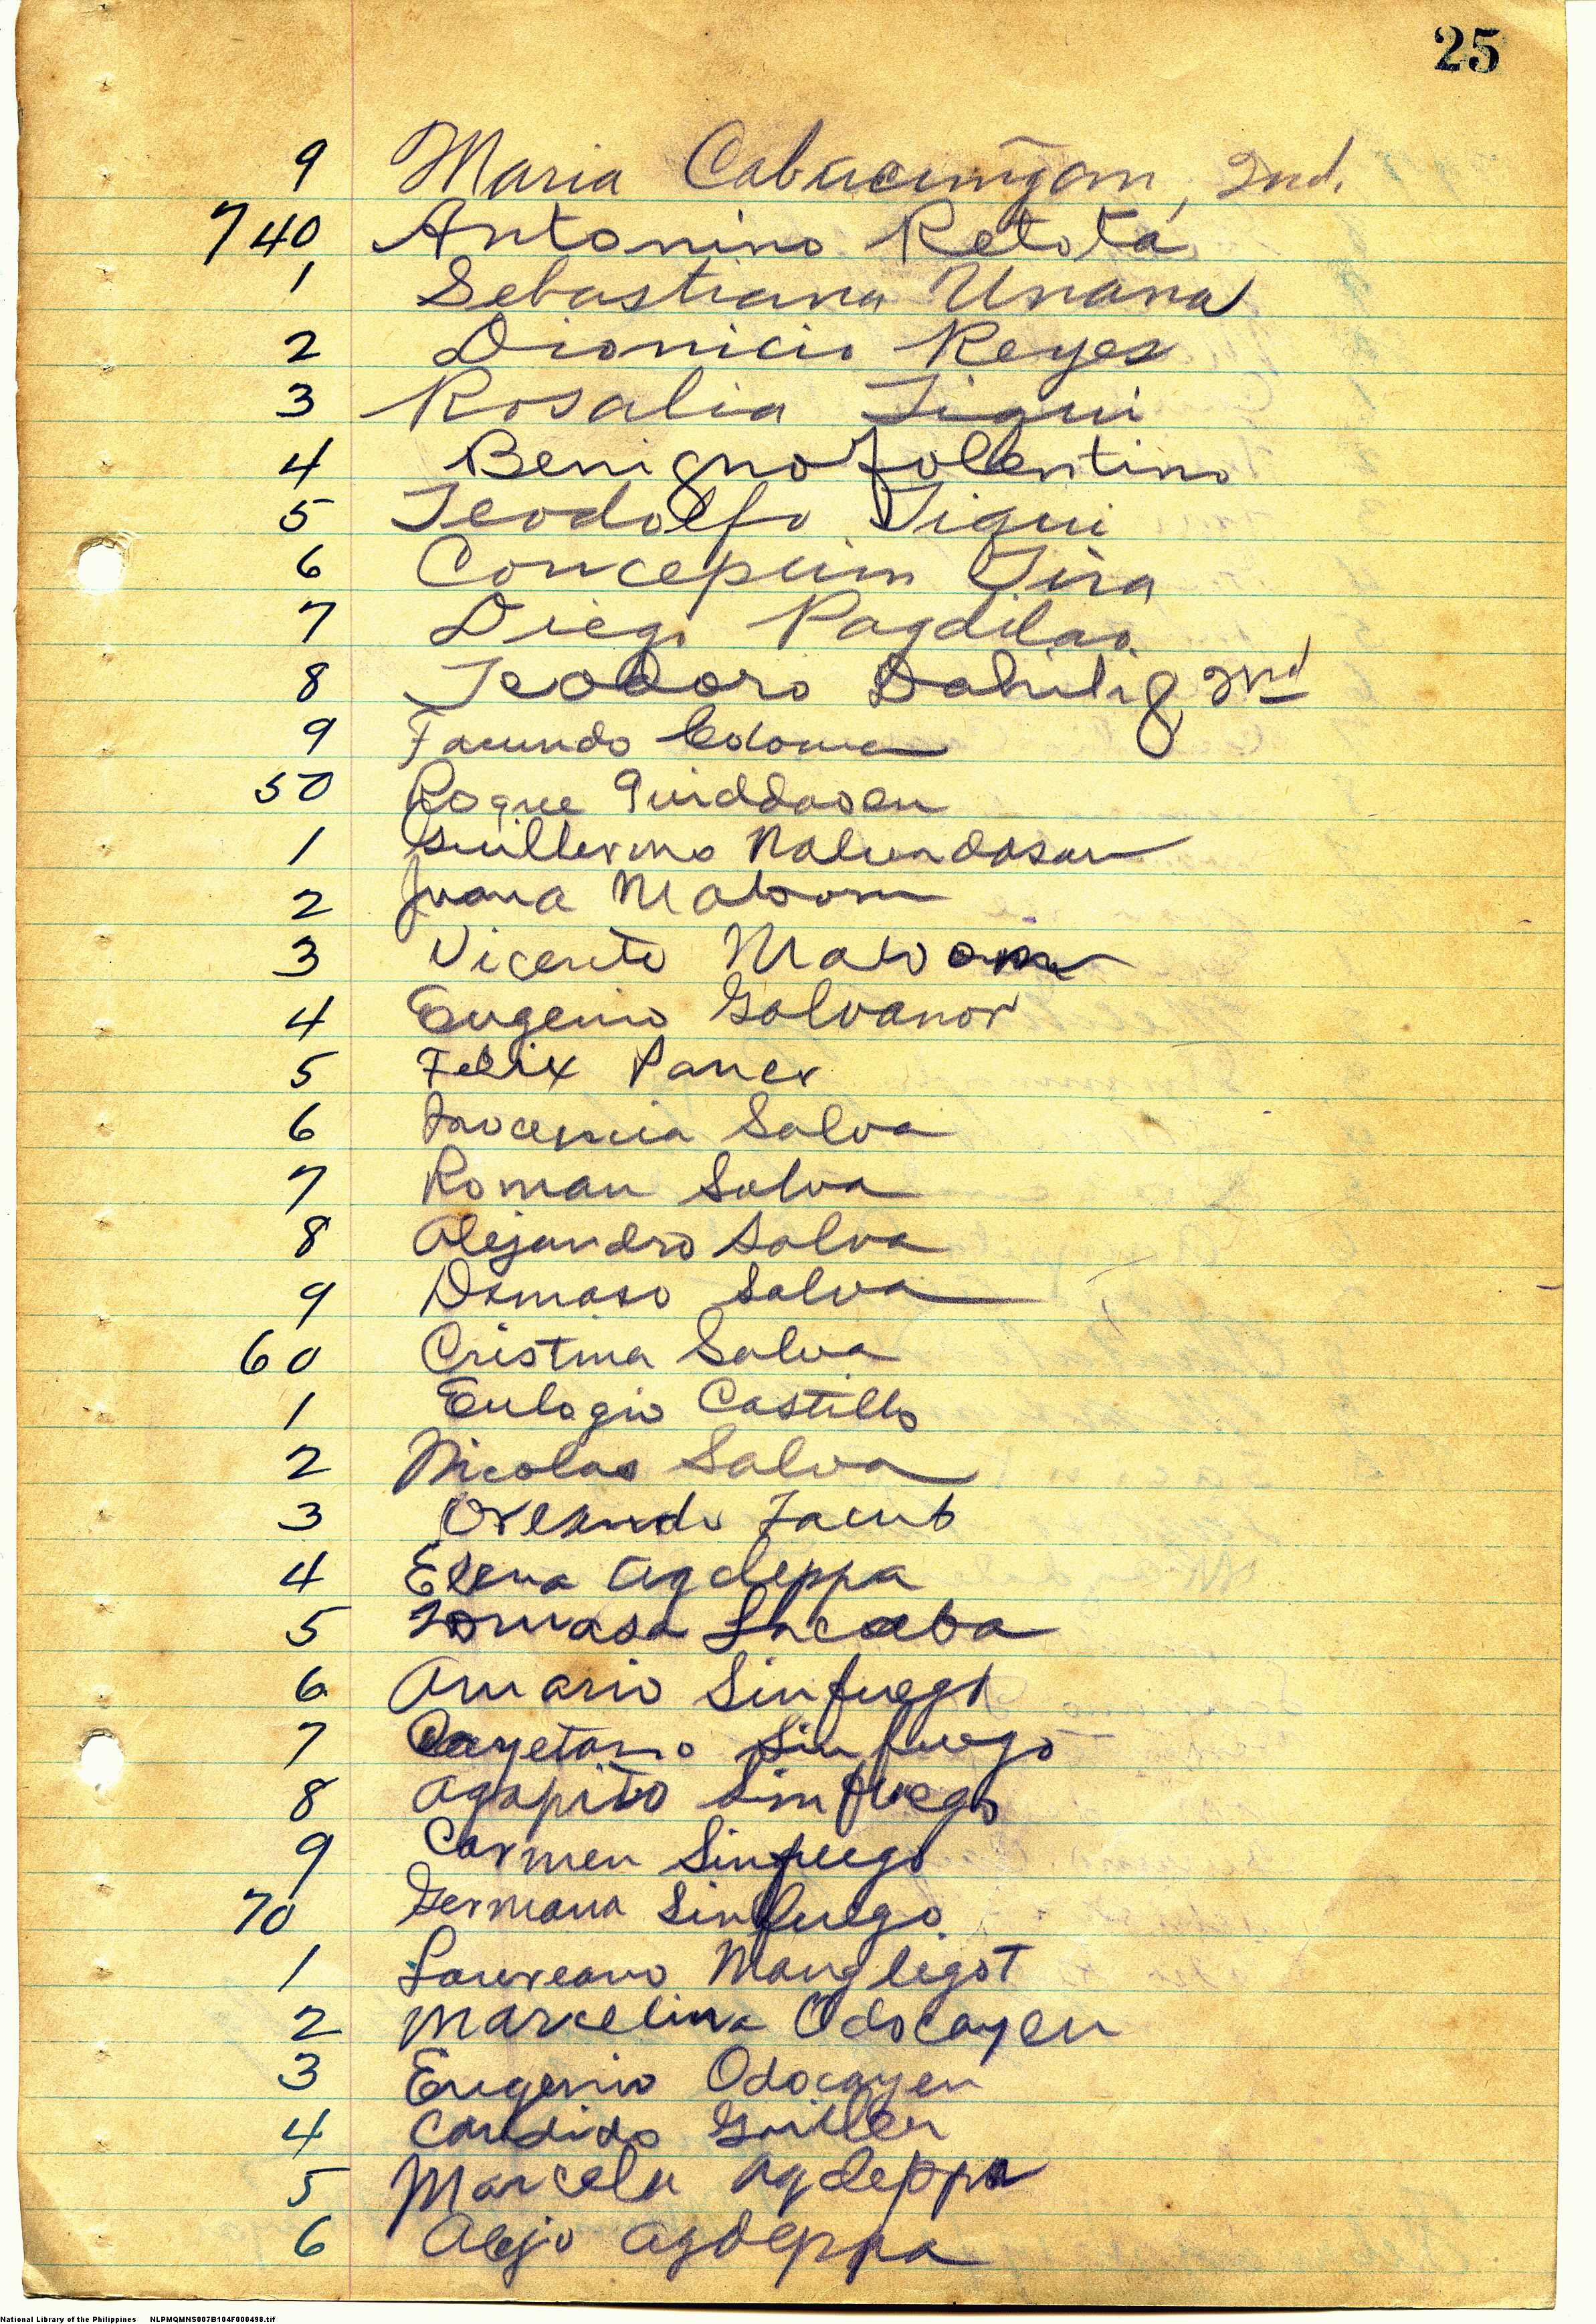 25
9 Maria Cabacungan, 2nd.
740 Antonino Retotá
1 Sebastiana Unana
2 Dionicio Reyes
3 Rosalia Tiqui
4 Benigno Tolentino
5 Teodolfo Tiqui
6 Concepcion Tira
7 Diego Pagdilao
8 Teodoro Dahilig 2nd
9 Facundo Coloma
50 Roque Quiddaoen
1 Guillermo Nalundasan
2 Juana Maboom
3 Vicente
4 Eugenio Galvanor
5 Felix
6 Inocencia Salva
7 Roman Salva
8 Alejandro Salva
9 Damaso Salva
60 Cristina Salva
1 Eulogio Castillo
2 Nicolas Salva
3 Orlando Jacub
4 Elena Agdeppa
5 Tomasa Lacaba
6 Amario Sinfuego
7 Cayetano Sinfuego
8 Agapito Sinfuego
9 Carmen Sinfuego
70 Germana Sinfuego
1 Laureano Mangligot
2 Marcelina Odocayen
3 Eugenio Odocayen
4 Candido Guillen
5 Marcela Agdeppa
6 Alejo Agdeppa
National Library of the Philippines NLPMQMNS007B104F000498.tif